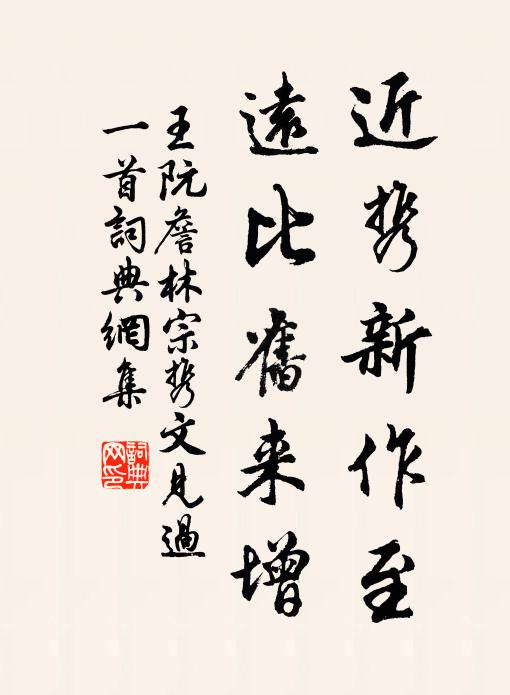 近携新作至
遠比舊来增
王阮詹林宗携文見過
一首詞典網集
詞典
网印